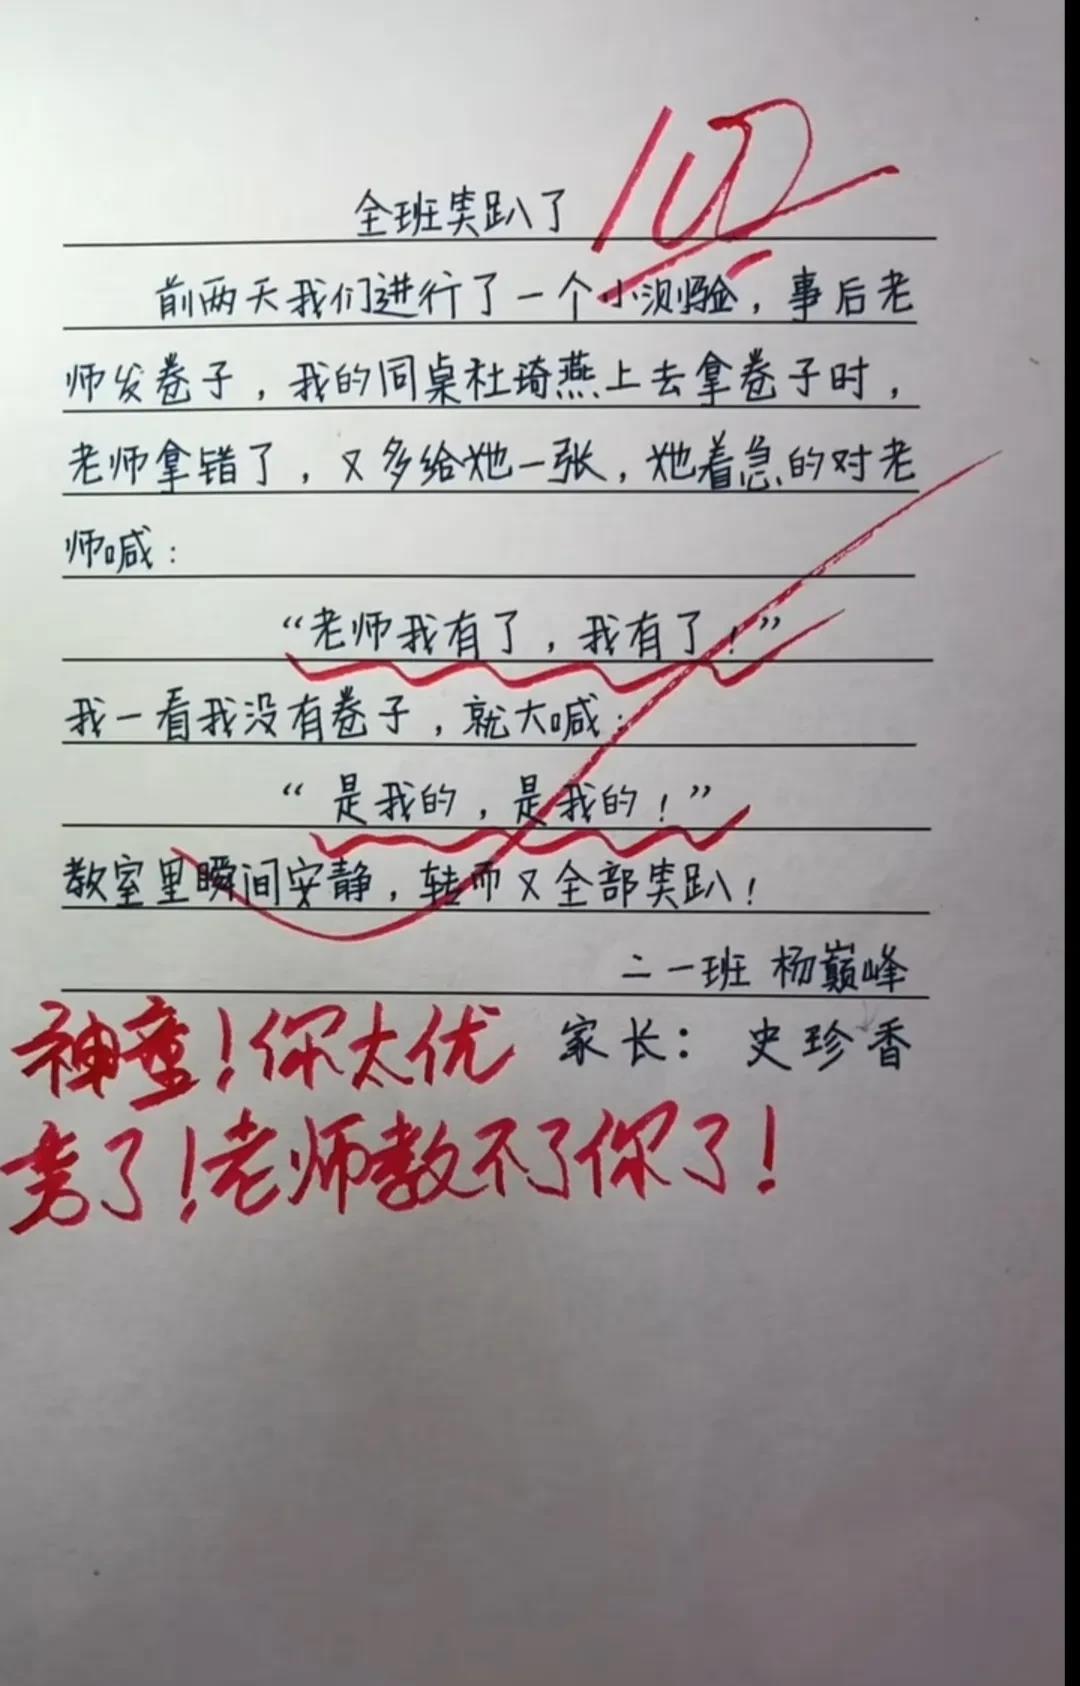 全班笑趴了
100
前两天我们进行了一个小测验，事后老
师发卷子，我的同桌杜琦燕上去拿卷子时，
老师拿错了，又多给她一张，她着急的对老
师喊：
“老师我有了，我有了！”
我一看我没有卷子，就大喊：
“是我的，是我的！”
教室里瞬间安静，转而又全部笑趴！
二一班 杨巅峰
家长：史珍香
神童！你太优
秀了！老师教不了你了！